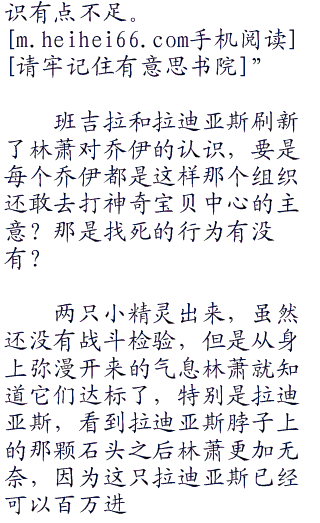 识有点不足。
[m.heihei66.com手机阅读]
[请牢记住有意思书院]”
班吉拉和拉迪亚斯刷新
了林萧对乔伊的认识，要是
每个乔伊都是这样那个组织
还敢去打神奇宝贝中心的主
意？那是找死的行为有没
有？
两只小精灵出来，虽然
还没有战斗检验，但是从身
上弥漫开来的气息林萧就知
道它们达标了，特别是拉迪
亚斯，看到拉迪亚斯脖子上
的那颗石头之后林萧更加无
奈，因为这只拉迪亚斯已经
可以百万进